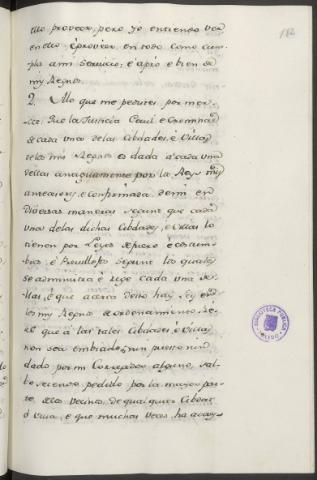 ello proveer, pero yo entiendo ver
en ello é proveer en todo como cum-
pla a mi servicio, é a pro e bien de
mis Regnos.
2. A lo que me pedistes por mer-
ced: Que la Justicia Cevil e Criminal
de cada una de las Cibdades, é Villas
de los mis Regnos es dada a cada una
dellas antiguamente por los Reyes mis
antecesores, é confirmada de mi en
diversas maneras segunt que cada
una de las dichas Cibdades, é Villas lo
tienen por Leyes de fuero é costum-
bres é Previllejos segunt los quales
se administra é rige cada una de
ellas, é que acerca desto hay Ley en
los mis Regnos de ordenamiento Re-
al que a las tales Cibdades, é Villas
non sea embiado, nin puesto nin
dado por mi Corregidor alguno, sal-
bo seiendo pedido por la mayor par-
te de los vecinos de qualquier Cibdat
ó Villa, é que muchas veces ha acaes-
182
BIBLIOTECA PUBLICA
TOLEDO